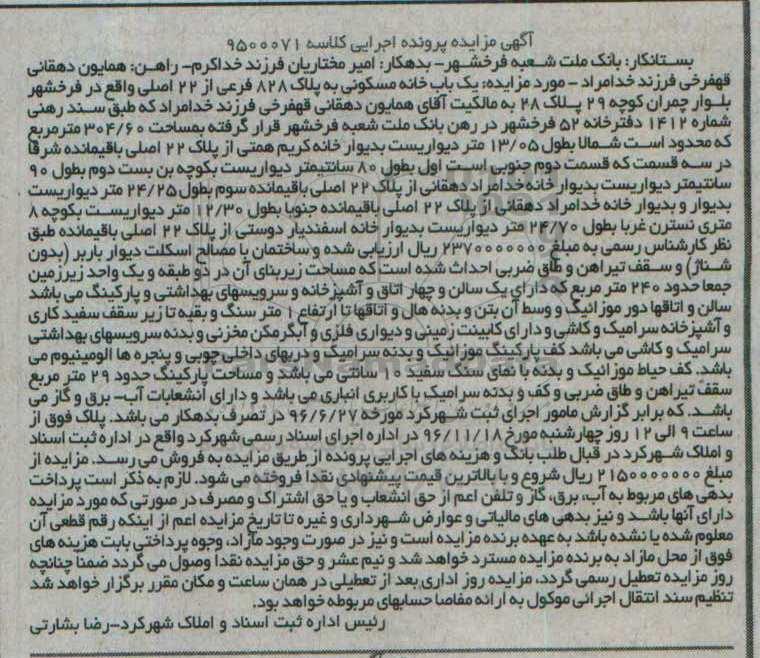 آگهی مزایده پرونده اجرایی کلاسه ۹۵۰۰۰۷۱
بستانکار: بانک ملت شعبه فرخشهر- بدهکار: امیر مختاریان فرزند خداکرم- راهن: همایون دهقانی
قهفرخی فرزند خدامراد - مورد مزایده: یک باب خانه مسکونی به پلاک ۸۲۸ فرعی از ۲۲ اصلی واقع در فرخشهر
بلوار چمران کوچه ۲۹ پلاک ۲۸ به مالکیت آقای همایون دهقانی قهفرخی فرزند خدامراد که طبق سند رهنی
شماره ۱۴۱۲ دفترخانه ۵۲ فرخشهر در رهن بانک ملت شعبه فرخشهر قرار گرفته بمساحت ۳۰۴/۶۰ مترمربع
که محدود است شمالا بطول ۱۳/۰۵ متر دیواریست بدیوار خانه کریم همتی از پلاک ۲۲ اصلی باقیمانده شرقا
در سه قسمت که قسمت دوم جنوبی است اول بطول ۸۰ سانتیمتر دیواریست بکوچه بن بست دوم بطول ۹۰
سانتیمتر دیواریست بدیوار خانه خدامراد دهقانی از پلاک ۲۲ اصلی باقیمانده سوم بطول ۲۴/۲۵ متر دیواریست
بدیوار و بدیوار خانه خدامراد دهقانی از پلاک ۲۲ اصلی باقیمانده جنوبا بطول ۱۲/۳۰ متر دیواریست بکوچه ۸
متری نسترن غربا بطول ۲۴/۷۰ متر دیواریست بدیوار خانه اسفندیار دوستی از پلاک ۲۲ اصلی باقیمانده طبق
نظر کارشناس رسمی به مبلغ ۲۳۷۰۰۰۰۰۰۰ ریال ارزیابی شده و ساختمان با مصالح اسکلت دیوار باربر (بدون
شناژ) و سقف تیراهن و طاق ضربی احداث شده است که مساحت زیربنای آن در دو طبقه و یک واحد زیرزمین
جمعا حدود ۲۴۰ متر مربع که دارای یک سالن و چهار اتاق و آشپزخانه و سرویسهای بهداشتی و پارکینگ می باشد
سالن و اتاقها دور موزائیک و وسط آن بتن و بدنه هال و اتاقها تا ارتفاع ۱ متر سنگ و بقیه تا زیر سقف سفید کاری
و آشپزخانه سرامیک و کاشی و دارای کابینت زمینی و دیواری فلزی و آبگرمکن مخزنی و بدنه سرویسهای بهداشتی
سرامیک و کاشی می باشد کف پارکینگ موزائیک و بدنه سرامیک و دربهای داخلی چوبی و پنجره ها الومینیوم می
باشد. کف حیاط موزائیک و بدنه با نمای سنگ سفید ۱۰ سانتی می باشد و مساحت پارکینگ حدود ۲۹ متر مربع
سقف تیراهن و طاق ضربی و کف و بدنه سرامیک با کاربری انباری می باشد و دارای انشعابات آب- برق و گاز می
باشد. که برابر گزارش مامور اجرای ثبت شهرکرد مورخه ۹۶/۶/۲۷ در تصرف بدهکار می باشد. پلاک فوق از
ساعت ۹ الی ۱۲ روز چهارشنبه مورخ ۹۶/۱۱/۱۸ در اداره اجرای اسناد رسمی شهرکرد واقع در اداره ثبت اسناد
و املاک شهرکرد در قبال طلب بانک و هزینه های اجرایی پرونده از طریق مزایده به فروش می رسد. مزایده از
مبلغ ۲۱۵۰۰۰۰۰۰۰ ریال شروع و با بالاترین قیمت پیشنهادی نقدا فروخته می شود. لازم به ذکر است پرداخت
بدهی های مربوط به آب، برق، گاز و تلفن اعم از حق انشعاب و یا حق اشتراک و مصرف در صورتی که مورد مزایده
دارای آنها باشد و نیز بدهی های مالیاتی و عوارض شهرداری و غیره تا تاریخ مزایده اعم از اینکه رقم قطعی آن
معلوم شده یا نشده باشد به عهده برنده مزایده است و نیز در صورت وجود مازاد، وجوه پرداختی بابت هزینه های
فوق از محل مازاد به برنده مزایده مسترد خواهد شد و نیم عشر و حق مزایده نقدا وصول می گردد ضمنا چنانچه
روز مزایده تعطیل رسمی گردد، مزایده روز اداری بعد از تعطیلی در همان ساعت و مکان مقرر برگزار خواهد شد
تنظیم سند انتقال اجرائی موکول به ارائه مفاصا حسابهای مربوطه خواهد بود.
رئیس اداره ثبت اسناد و املاک شهرکرد-رضا بشارتی